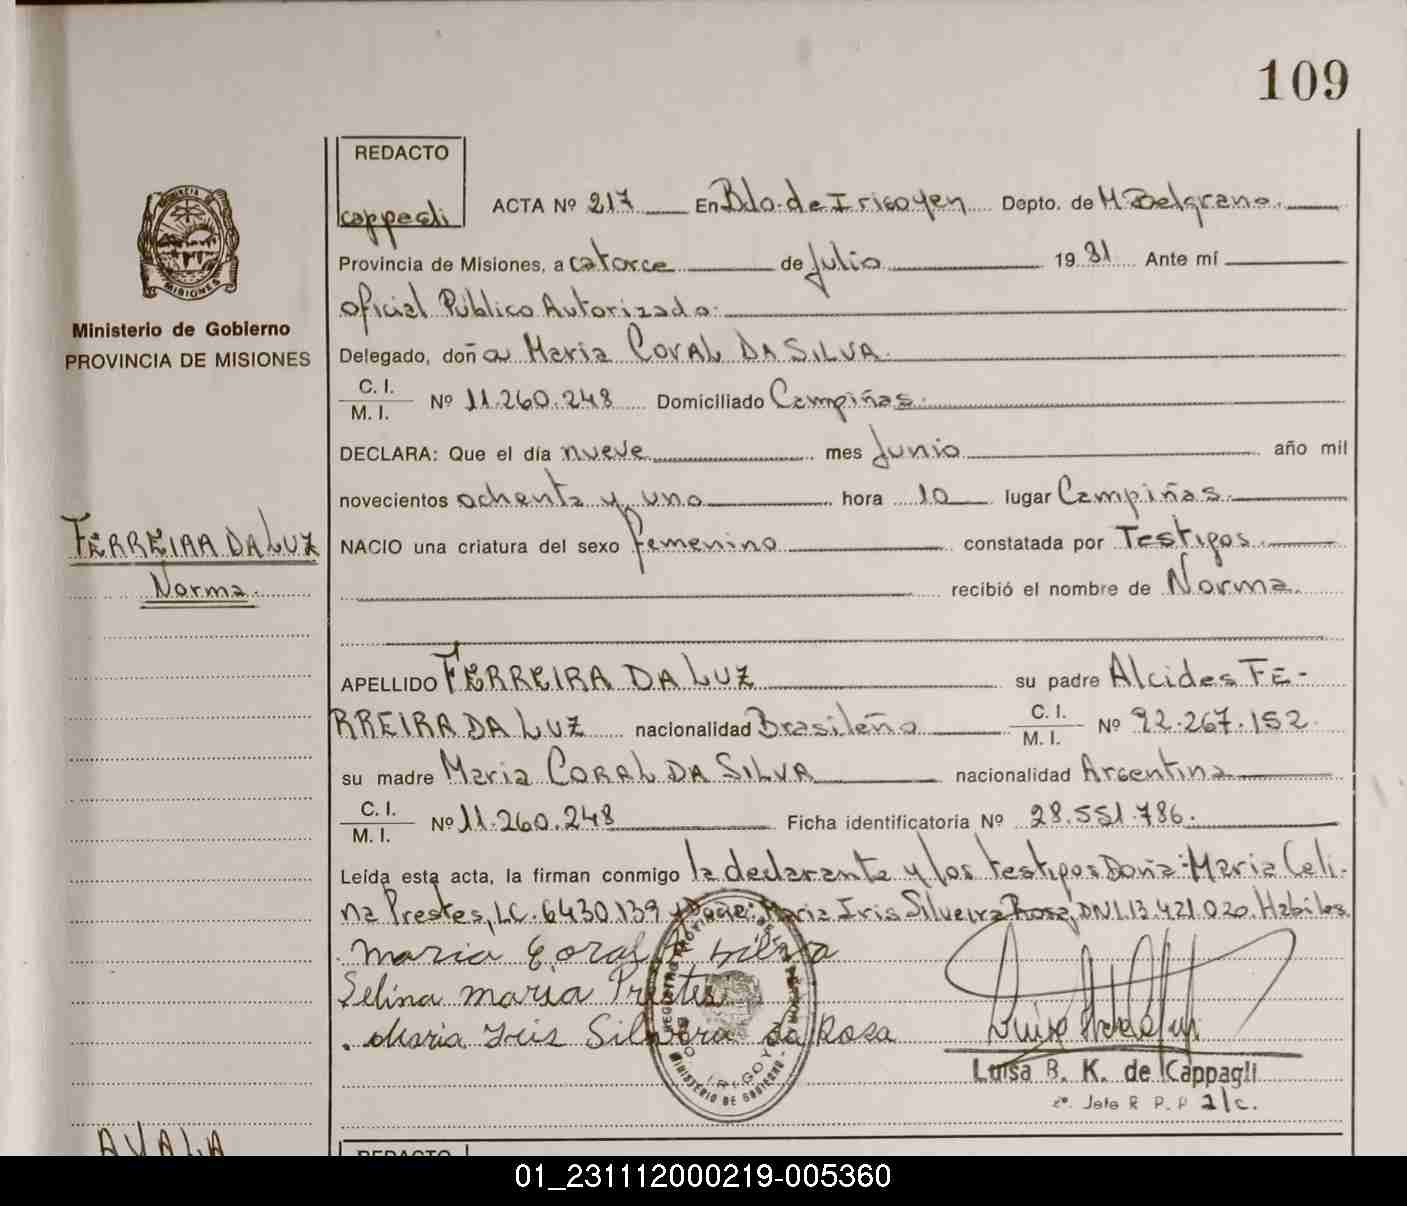 109
REDACTO
cappagli
ACTA Nº 217 En Bdo. de Irigoyen Depto. de M. Belgrano.
Provincia de Misiones, a catorce de Julio 1981 Ante mí
oficial Público Autorizado.
Ministerio de Gobierno
PROVINCIA DE MISIONES
Delegado, doña Maria CORAL DA SILVA.
C. I.
M. I.
Nº 11.260.248 Domiciliado Campiñas.
DECLARA: Que el día nueve mes Junio año mil
novecientos ochenta y uno hora 10 lugar Campiñas.
FERREIRA DA LUZ
Norma.
NACIO una criatura del sexo femenino constatada por Testigos.
recibió el nombre de Norma.
APELLIDO FERREIRA DA LUZ su padre Alcides FE-
RREIRA DA LUZ nacionalidad Brasileño C. I. M. I. Nº 92.267.152
su madre Maria CORAL DA SILVA nacionalidad Argentina
C. I.
M. I.
Nº 11.260.248 Ficha identificatoria Nº 28.551.786.
Leída esta acta, la firman conmigo la declarante y los testigos Doña: Maria Celi-
na Prestes, LC. 6430.139 y Maria Iris Silveira Rosa, DNI.13.421.020. Habiles.
maria Coral Silva
Selina maria Prestes
Maria Iris Silvera da Rosa
Luisa B. K. de Cappagli
2º. Jefe R. P. P a/c.
MINISTERIO DE GOBIERNO
AYALA
REDACTO
01_231112000219-005360